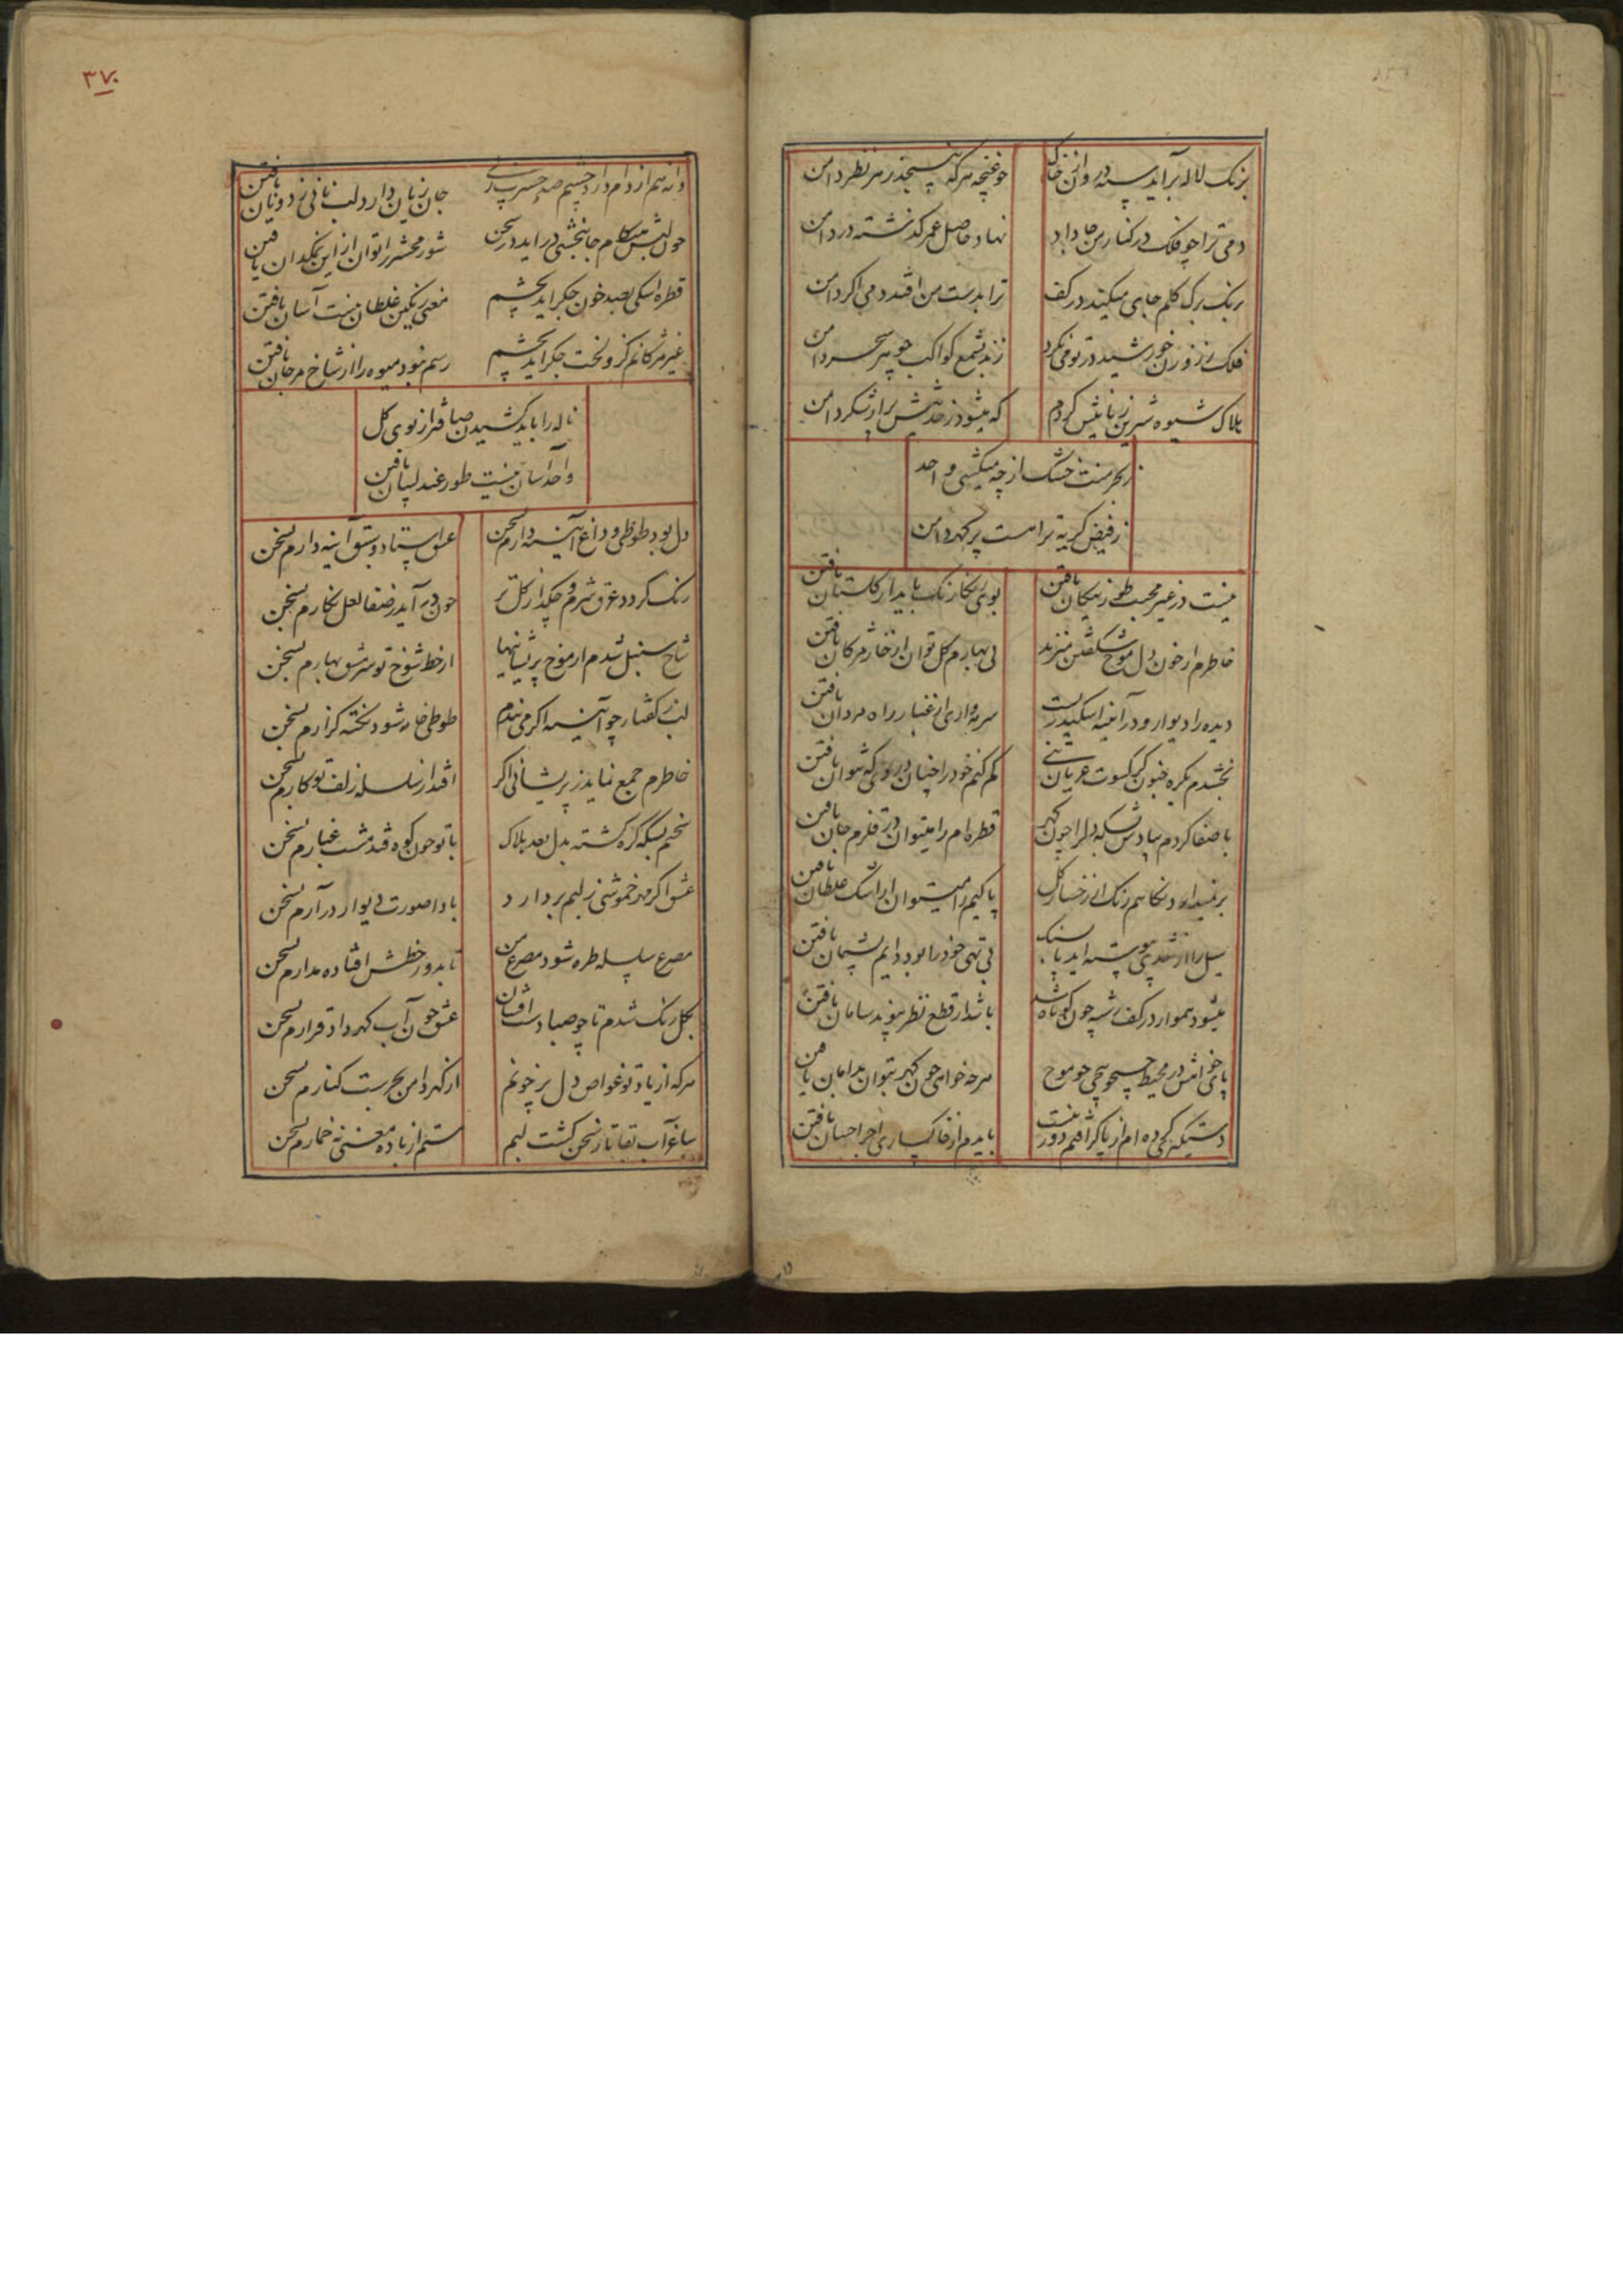 برنک لاله برآید سپند در خاک
چو غنچه هرکه نسنجد ز هر نظر دامن
دمی ترا چو فلک در کنار من جا داد
نهاد حاصل عمر گذشته در دامن
برنک برک کلم جای میکند در کف
ترا بدست من افتد دمی اکر دامن
فلک ز خورشید در تو می نکرد
زند بشمع کواکب چو پیر سحر دامن
هلاک شیوه شیرین زبانیش کردم
که میشود ز حدیثش پر از شکر دامن
ز بحر منت خشک از چه میکشی واحد
ز فیض کریه ترا هست پر کهر دامن
نیست در غیر محبت طرز نیکان یافتن
بوی یکتا رنک باید از کلستان یافتن
خاطرم از خون دل موج شکفتن میزند
بی بهارم کل توان از خار مژکان یافتن
دیده را دیوار و در آئینه اسکندریست
سرمه واری از غبار راه مردان یافتن
بخشدم کر جنون کسوت عریان تنی
کم کنم خود را چنان در وی که نتوان یافتن
باصفا کردم بیادش بسکه دل را چون کهر
قطره ام را میتوان در قلزم جان یافتن
برنمیدارد نکاهم رنک از رخسار کل
پاکیم را میتوان از اشک غلطان یافتن
سیل را از تندی پیوسته آید پا بسنک
بی تهی خود را بود دایم پشیمان یافتن
میشود هموار در کف رشته چون کوتاه شد
باشد از قطع نظر پیوند سامان یافتن
پای خواهش در محیط جستجو پیچی چو موج
هرچه خواهی چون کهر بتوان بدامان یافتن
دستکیر کرده ام از پا کر افتم دور نیست
بایدم از خاکساری اجر احسان یافتن
۳۷۰
دانه هم از دام دارد چشم صد حسرت
جان زیان دارد لب نانی ز دونان یافتن
چون لبش هنکام جانبخشی در آید در سخن
شور محشر را توان از این نمکدان یافتن
قطره اشکی بصد خون جکر آید بچشم
معنی رنکین غلطان نیست آسان یافتن
غیر مژکانم کزو لخت جکر آید بچشم
رسم نبود میوه را از شاخ مرجان یافتن
ناله را باید کشیدن صافتر از بوی کل
واحد آسان نیست طور عندلیبان یافتن
دل بود طوطی و داغ آینه دارم سخن
عشق استاد و بتو آینه دارم سخن
رنک کردد عرق شرم و چکد از کل تر
چون در آید ز صفا لعل نکارم بسخن
شاخ سنبل شدم از موج پریشانیها
از خط شوخ تو سرشق بهارم سخن
لب ز کفتار چو آئینه اکر می بندم
طوطی خار شود نکته کزارم بسخن
خاطرم جمع نماید ز پریشانی اکر
افتد از سلسله زلف تو کارم بسخن
سخنم بسکه کره کشته بدل بعد هلاک
با تو چون کوه فتد مشت غبارم بسخن
عشق اکر مهر خموشی ز لبم بردارد
با دا صورت دیوار در آرم بسخن
مصرع سلسله طره شود مصرع من
تا بدور خطش افتاده مدارم بسخن
کل رنک شدم تا چو صبا دست افشان
عشق چون آب کهر داد قرارم بسخن
هرکه از یاد تو غواص دل پرخونم
از کهر دامن بحرست کنارم بسخن
ساغر آب بقا تا ز سخن کشت لبم
مستم از باده معنی نه خمارم بسخن